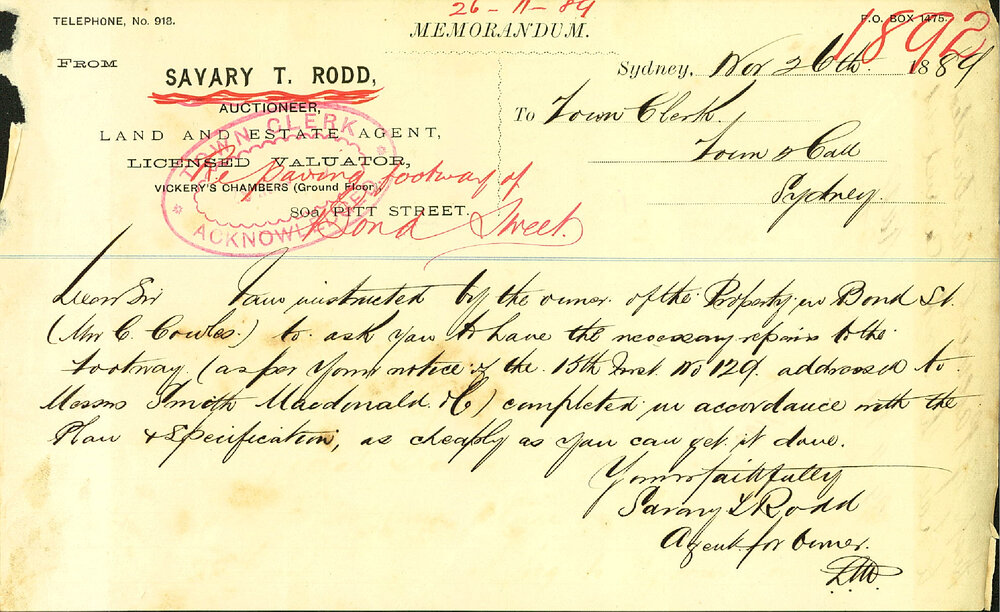 26-11-89
TELEPHONE, No. 918.
MEMORANDUM.
P.O. BOX 1475.
1892
FROM
SAVARY T. RODD,
AUCTIONEER,
LAND AND ESTATE AGENT,
LICENSED VALUATOR,
VICKERY'S CHAMBERS (Ground Floor),
80a, PITT STREET.
TOWN CLERK
ACKNOWLEDGED
Re paving footway of
Bond Street.
Sydney, Nov 26th 1889
To Town Clerk.
Town Hall
Sydney.
Dear Sir I am instructed by the owner of the Property in Bond St.
(Mr C. Cowles.) to ask you to have the necessary repairs to the
footway (as per your notice of the 15th Inst. No 129. addressed to
Messrs Smith Macdonald & C) completed in accordance with the
Plan & Specification, as cheaply as you can get it done.
Yours faithfully
Savary T Rodd
Agent for Owner.